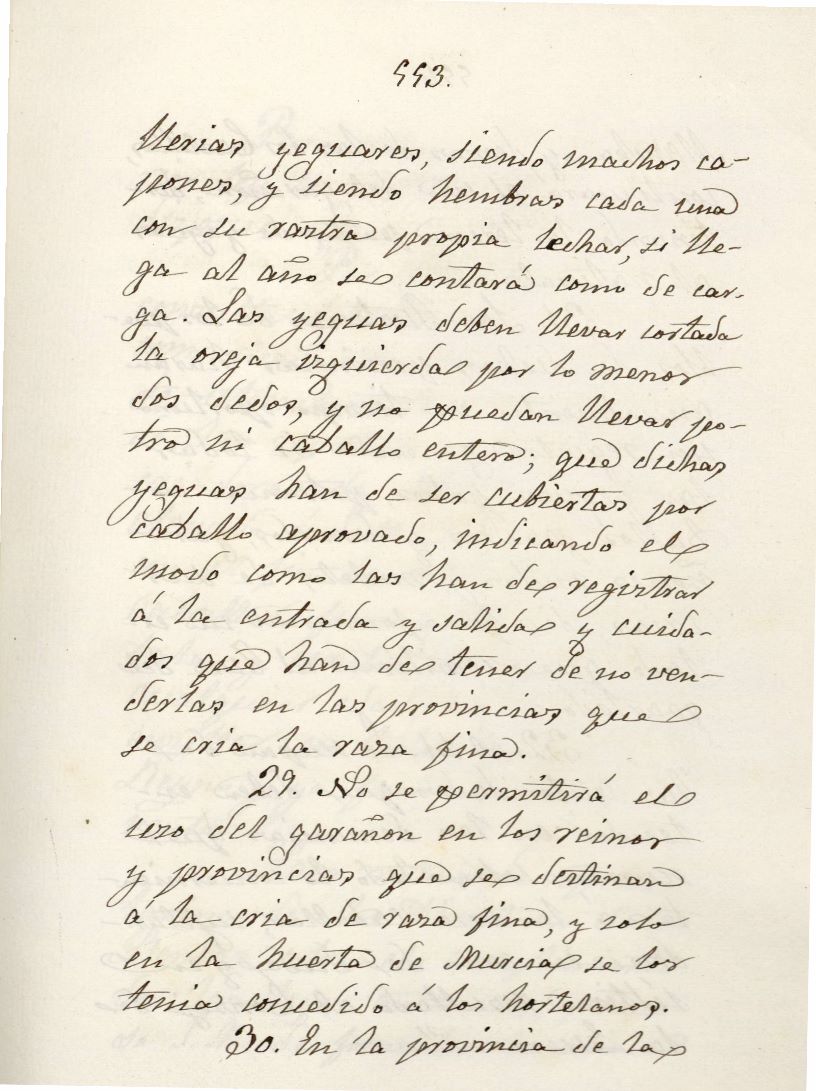 553.
llerias yeguares, siendo machos ca-
pones, y siendo hembras cada una
con su rastra propia lechar, si lle-
ga al año se contará como de car-
ga. Las yeguas deben llevar cortada
la oreja izquierda por lo menos
dos dedos, y no puedan llevar po-
tro ni caballo entero; que dichas
yeguas han de ser cubiertas por
caballo aprovado, indicando el
modo como las han de registrar
á la entrada y salida y cuida-
dos que han de tener de no ven-
derlas en las provincias que
se cria la raza fina.
29. No se permitirá el
uzo del garañon en los reinos
y provincias que se destinan
á la cria de raza fina, y solo
en la huerta de Murcia se los
tenia concedido á los hortelanos.
30. En la provincia de la